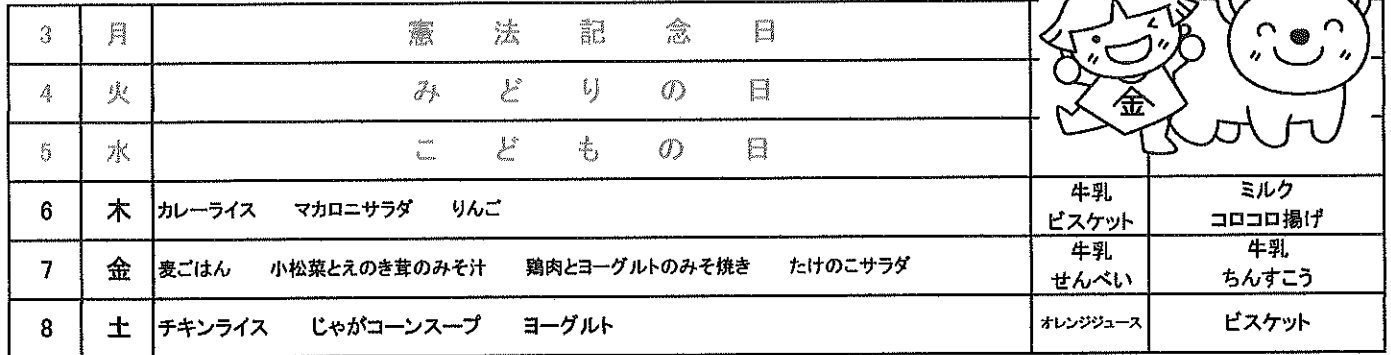 3 月 憲法記念日
金
4 火 みどりの日
5 水 こどもの日
6 木 カレーライス マカロニサラダ りんご 牛乳 ミルク
ビスケット コロコロ揚げ
7 金 麦ごはん 小松菜とえのき茸のみそ汁 鶏肉とヨーグルトのみそ焼き たけのこサラダ 牛乳 牛乳
せんべい ちんすこう
8 土 チキンライス じゃがコーンスープ ヨーグルト オレンジジュース ビスケット